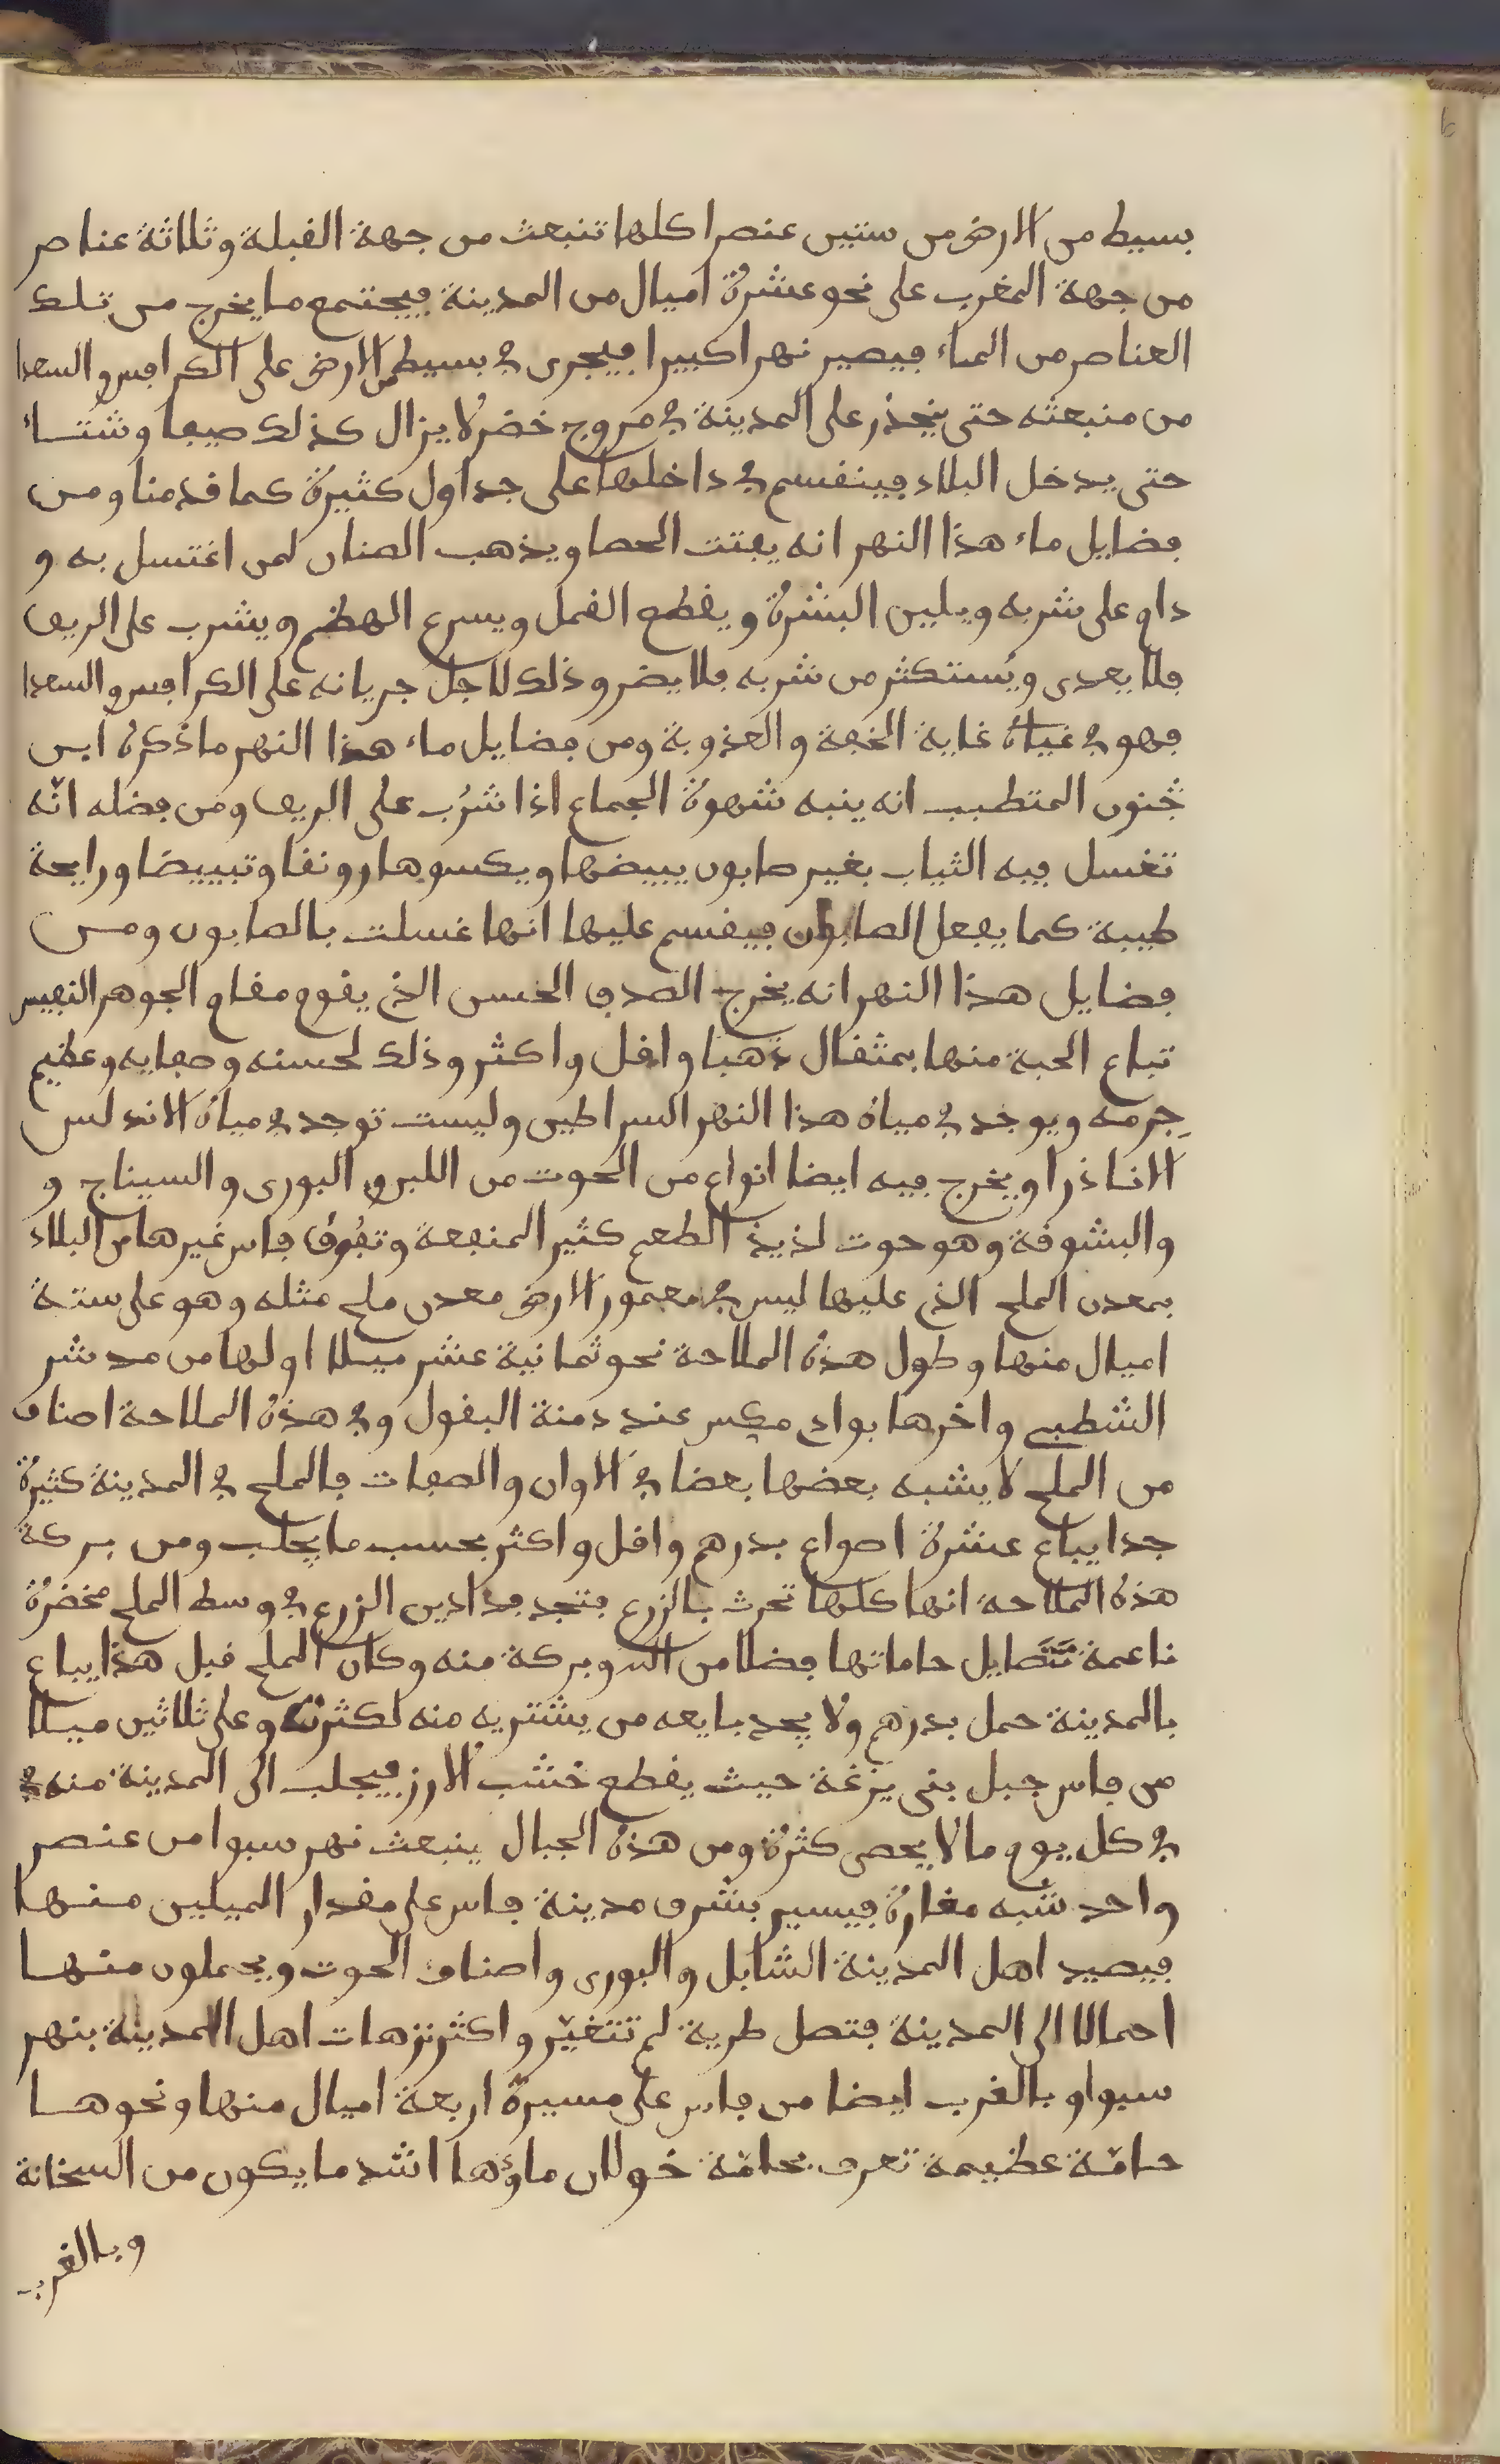 بسيط من الارض من ستين عنصرا كلها تنبعث من جهة القبلة وثلاثة عناصر
من جهة المغرب على نحو عشرة اميال من المدينة فيجتمع ما يخرج من تلك
العناصر من الماء فيصير نهرا كبيرا فيجرى في بسيط من الارض على الكرافس والسعدا
من منبعثه حتى ينحذر على المدينة في مروج خضر لا يزال كذلك صيفا وشتاء
حتى يدخل البلاد فينقسم في داخلها على جداول كثيرة كما قدمنا ومن
فضايل ماء هذا النهر انه يفتت الحصا ويذهب الصنان لمن اغتسل به و
دام على شربه ويلين البشرة ويقطع القمل ويسرع الهظم ويشرب على الريف
فلا يعدى ويُستكثر من شربه فلا يضر وذلك لاجل جريانه على الكرافس والسعدا
فهو في غاية الخفة والعذوبة ومن فضايل ماء هذا النهر ما ذكره ابن
جُنون المتطبب انه ينبه شهوة الجماع اذا شرُب على الريف ومن فضله انّه
تغسل فيه الثياب بغير صابون يبيضها ويكسوها رونقا وتبييضا ورايحة
طيبة كما يفعل الصابون فيقسم عليها انها غسلت بالصابون ومن
فضايل هذا النهر انه يخرج الصدف الحسن الذى يقوم مقام الجوهر النفيس
تباع الحبة منها بمثقال ذهبا واقل واكثر وذلك لحسنه وصفايه وعظيم
جِرمه ويوجد في مياه هذا النهر السراطين وليست توجد في مياه الاندلس
الا نادرا ويخرج فيه ايضا انواع من الحوت من اللبرو البورى والسيناج و
والبشوقة وهو حوت لذيذ الطعم كثير المنفعة وتفُوق فاس غيرها من البلاد
بمعدن الملح الذى عليها ليس في معمور الارض معدن ملح مثله وهو على ستة
اميال منها وطول هذه الملاحة نحو ثمانية عشر ميلا اولها من مدشر
الشطبى واخرها بوادى مكس عند دمنة البقول وفي هذه الملاحة اصناف
من الملح لا يشبه بعضها بعضا في الاوان والصفات فالملح في المدينة كثيرة
جدا يباع عشرة اصواع بدرهم واقل واكثر بحسب ما يجلب ومن بركة
هذه الملاحة انها كلها تحرث بالزرع فتجد فدادين الزرع في وسط الملح مخضرة
ناعمة تتَمايل حاماتها فضلا من الله وبركة منه وكان الملح قبل هذا يباع
بالمدينة حمل بدرهم ولا يجد بايعه من يشتريه منه لكثرته وعلى ثلاثين ميلا
من فاس جبل بنى يزغة حيث يقطع خشب الارز فيجلب الى المدينة منه في
في كل يوم ما لا يحصى كثرة ومن هذه الجبال ينبعث نهر سبوا من عنصر
واحد شبه مغارة فيسير بشرق مدينة فاس على مقدار الميلين منها
فيصيد اهل المدينة الشابل والبورى واصناف الحوت ويحملون منها
احمالا الى المدينة فتصل طرية لم تتغيّر واكثر نزهات اهل المدينة بنهر
سبوا وبالغرب ايضا من فاس على مسيرة اربعة اميال منها ونحوها
حامّة عظيمة تعرف بحامّة خولان ماؤها اشد ما يكون من السخانة
وبالغرب